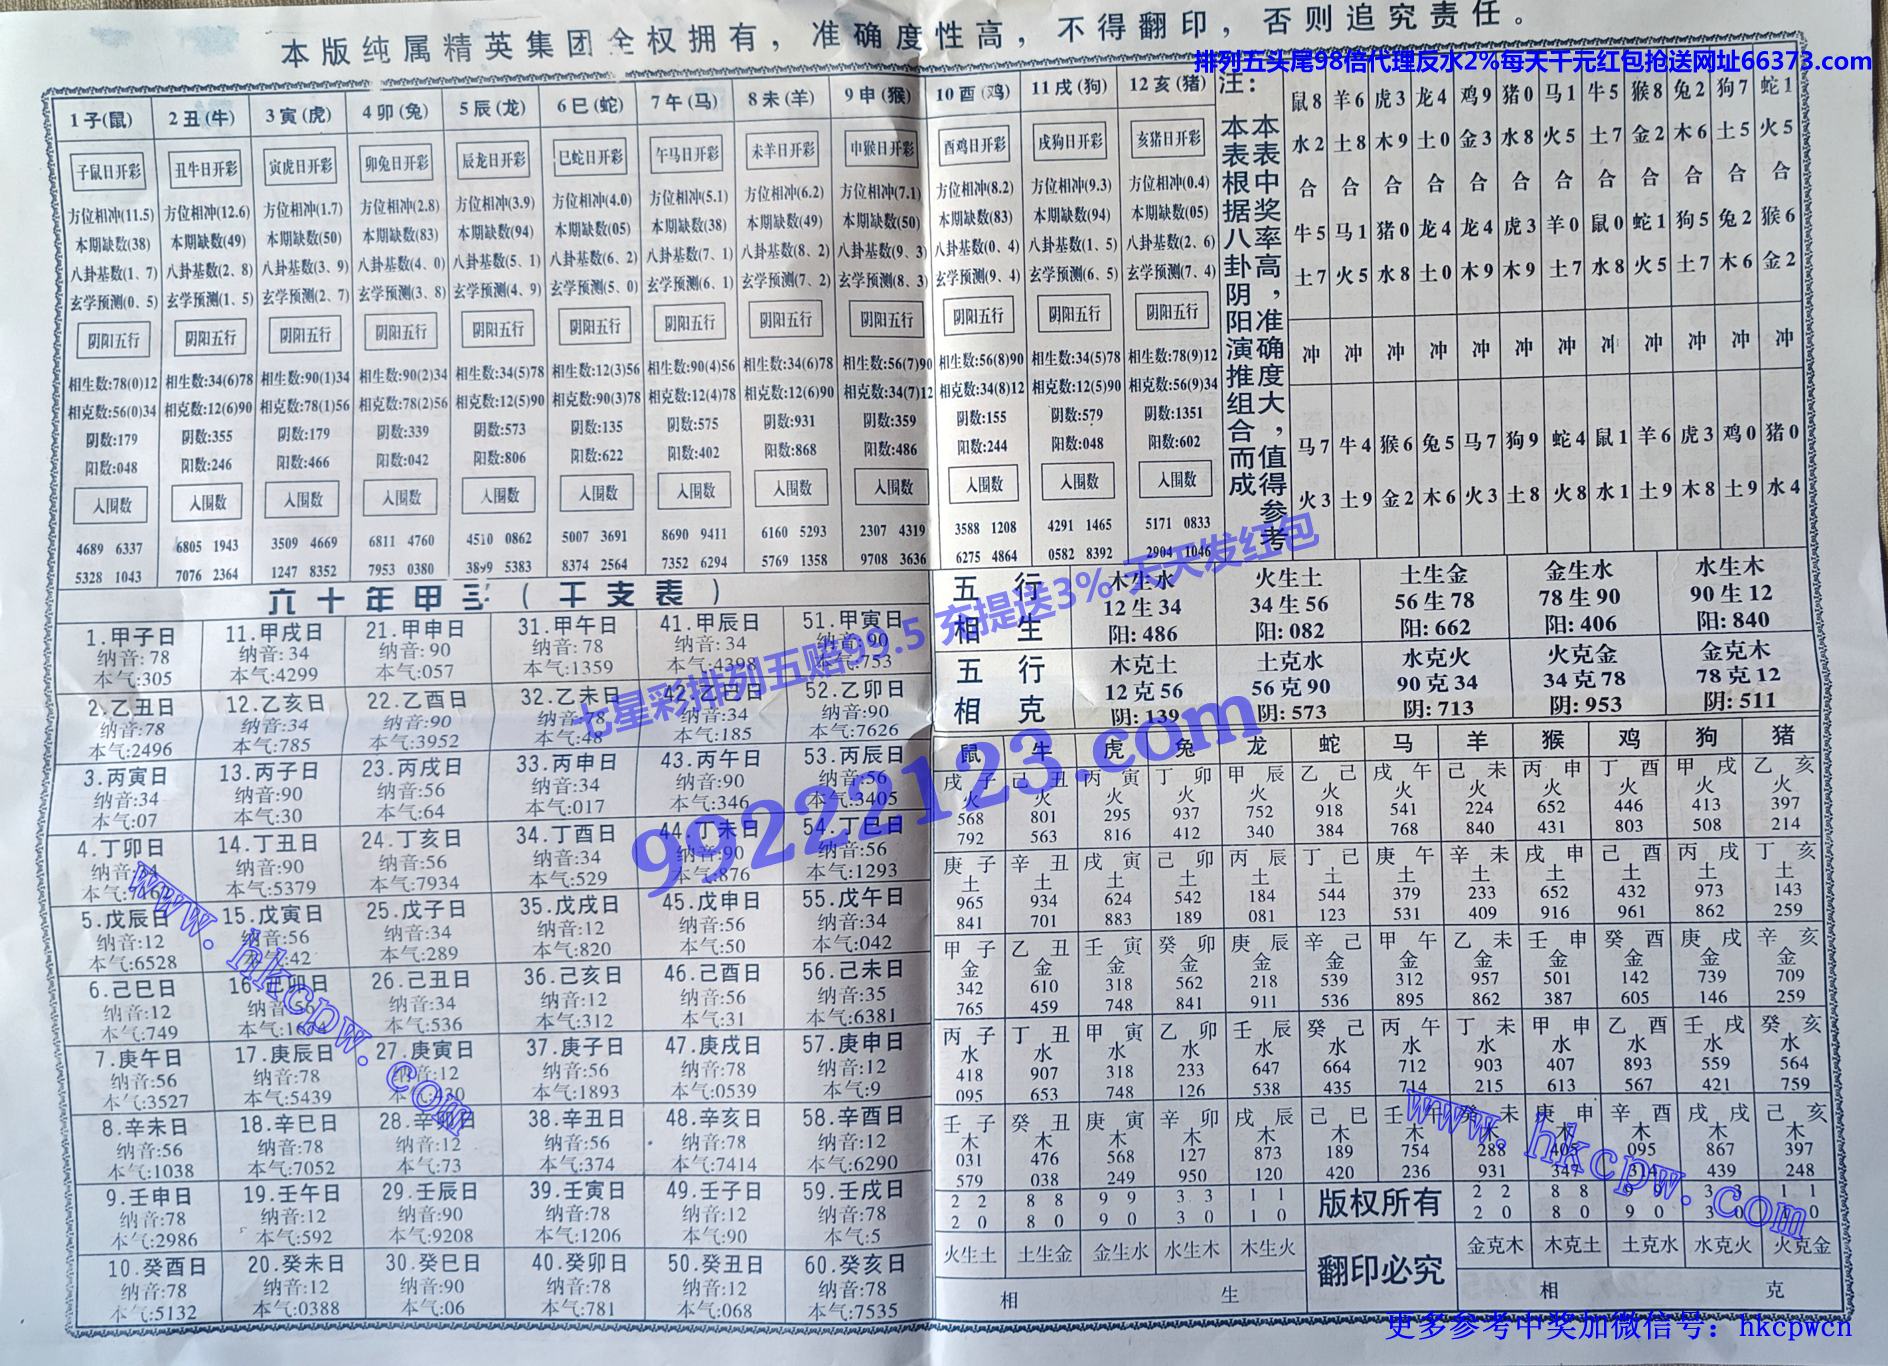 本版纯属精英集团全权拥有，准确度性高，不得翻印，否则追究责任。
排列五头尾98倍代理反水2%每天千元红包抢送网址66373.com
1子(鼠) 2丑(牛) 3寅(虎) 4卯(兔) 5辰(龙) 6巳(蛇) 7午(马) 8未(羊) 9申(猴) 10酉(鸡) 11戌(狗) 12亥(猪)
子鼠日开彩 丑牛日开彩 寅虎日开彩 卯兔日开彩 辰龙日开彩 巳蛇日开彩 午马日开彩 未羊日开彩 申猴日开彩 酉鸡日开彩 戌狗日开彩 亥猪日开彩
方位相冲(11.5) 方位相冲(12.6) 方位相冲(1.7) 方位相冲(2.8) 方位相冲(3.9) 方位相冲(4.0) 方位相冲(5.1) 方位相冲(6.2) 方位相冲(7.1) 方位相冲(8.2) 方位相冲(9.3) 方位相冲(0.4)
本期缺数(38) 本期缺数(49) 本期缺数(50) 本期缺数(83) 本期缺数(94) 本期缺数(05) 本期缺数(38) 本期缺数(49) 本期缺数(50) 本期缺数(83) 本期缺数(94) 本期缺数(05)
八卦基数(1、7) 八卦基数(2、8) 八卦基数(3、9) 八卦基数(4、0) 八卦基数(5、1) 八卦基数(6、2) 八卦基数(7、1) 八卦基数(8、2) 八卦基数(9、3) 八卦基数(0、4) 八卦基数(1、5) 八卦基数(2、6)
玄学预测(0、5) 玄学预测(1、5) 玄学预测(2、7) 玄学预测(3、8) 玄学预测(4、9) 玄学预测(5、0) 玄学预测(6、1) 玄学预测(7、2) 玄学预测(8、3) 玄学预测(9、4) 玄学预测(6、5) 玄学预测(7、4)
阴阳五行 阴阳五行 阴阳五行 阴阳五行 阴阳五行 阴阳五行 阴阳五行 阴阳五行 阴阳五行 阴阳五行 阴阳五行 阴阳五行
相生数:78(0)12 相生数:34(6)78 相生数:90(1)34 相生数:90(2)34 相生数:34(5)78 相生数:12(3)56 相生数:90(4)56 相生数:34(6)78 相生数:56(7)90 相生数:56(8)90 相生数:34(5)78 相生数:78(9)12
相克数:56(0)34 相克数:12(6)90 相克数:78(1)56 相克数:78(2)56 相克数:12(5)90 相克数:90(3)78 相克数:12(4)78 相克数:12(6)90 相克数:34(7)12 相克数:34(8)12 相克数:12(5)90 相克数:56(9)34
阴数:179 阴数:355 阴数:179 阴数:339 阴数:573 阴数:135 阴数:575 阴数:931 阴数:359 阴数:155 阴数:579 阴数:1351
阳数:048 阳数:246 阳数:466 阳数:042 阳数:806 阳数:622 阳数:402 阳数:868 阳数:486 阳数:244 阳数:048 阳数:602
入围数 入围数 入围数 入围数 入围数 入围数 入围数 入围数 入围数 入围数 入围数 入围数
4689 6337 6805 1943 3509 4669 6811 4760 4510 0862 5007 3691 8690 9411 6160 5293 2307 4319 3588 1208 4291 1465 5171 0833
5328 1043 7076 2364 1247 8352 7953 0380 3899 5383 8374 2564 7352 6294 5769 1358 9708 3636 6275 4864 0582 8392 2904 1046
注:
本表中奖率高，准确度大，值得参考
本表根据八卦阴阳演推组合而成
鼠8 羊6 虎3 龙4 鸡9 猪0 马1 牛5 猴8 兔2 狗7 蛇1
水2 土8 木9 土0 金3 水8 火5 土7 金2 木6 土5 火5
合 合 合 合 合 合 合 合 合 合 合 合
牛5 马1 猪0 龙4 龙4 虎3 羊0 鼠0 蛇1 狗5 兔2 猴6
土7 火5 水8 土0 木9 木9 土7 水8 火5 土7 木6 金2
冲 冲 冲 冲 冲 冲 冲 冲 冲 冲 冲 冲
马7 牛4 猴6 兔5 马7 狗9 蛇4 鼠1 羊6 虎3 鸡0 猪0
火3 土9 金2 木6 火3 土8 火8 水1 土9 木8 土9 水4
六十年甲子(干支表)
1.甲子日 11.甲戌日 21.甲申日 31.甲午日 41.甲辰日 51.甲寅日
纳音:78 纳音:34 纳音:90 纳音:78 纳音:34 纳音:90
本气:305 本气:4299 本气:057 本气:1359 本气:4398 本气:753
2.乙丑日 12.乙亥日 22.乙酉日 32.乙未日 42.乙巳日 52.乙卯日
纳音:78 纳音:34 纳音:90 纳音:78 纳音:34 纳音:90
本气:2496 本气:785 本气:3952 本气:48 本气:185 本气:7626
3.丙寅日 13.丙子日 23.丙戌日 33.丙申日 43.丙午日 53.丙辰日
纳音:34 纳音:90 纳音:56 纳音:34 纳音:90 纳音:56
本气:07 本气:30 本气:64 本气:017 本气:346 本气:3405
4.丁卯日 14.丁丑日 24.丁亥日 34.丁酉日 44.丁未日 54.丁巳日
纳音:34 纳音:90 纳音:56 纳音:34 纳音:90 纳音:56
本气: 本气:5379 本气:7934 本气:529 本气:876 本气:1293
5.戊辰日 15.戊寅日 25.戊子日 35.戊戌日 45.戊申日 55.戊午日
纳音:12 纳音:56 纳音:34 纳音:12 纳音:56 纳音:34
本气:6528 本气:42 本气:289 本气:820 本气:50 本气:042
6.己巳日 16.己卯日 26.己丑日 36.己亥日 46.己酉日 56.己未日
纳音:12 纳音:56 纳音:34 纳音:12 纳音:56 纳音:35
本气:749 本气: 本气:536 本气:312 本气:31 本气:6381
7.庚午日 17.庚辰日 27.庚寅日 37.庚子日 47.庚戌日 57.庚申日
纳音:56 纳音:78 纳音:12 纳音:56 纳音:78 纳音:12
本气:3527 本气:5439 本气: 本气:1893 本气:0539 本气:9
8.辛未日 18.辛巳日 28.辛卯日 38.辛丑日 48.辛亥日 58.辛酉日
纳音:56 纳音:78 纳音:12 纳音:56 纳音:78 纳音:12
本气:1038 本气:7052 本气:73 本气:374 本气:7414 本气:6290
9.壬申日 19.壬午日 29.壬辰日 39.壬寅日 49.壬子日 59.壬戌日
纳音:78 纳音:12 纳音:90 纳音:78 纳音:12 纳音:78
本气:2986 本气:592 本气:9208 本气:1206 本气:90 本气:5
10.癸酉日 20.癸未日 30.癸巳日 40.癸卯日 50.癸丑日 60.癸亥日
纳音:78 纳音:12 纳音:90 纳音:78 纳音:12 纳音:78
本气:5132 本气:0388 本气:06 本气:781 本气:068 本气:7535
五行 木生水 火生土 土生金 金生水 水生木
12生34 34生56 56生78 78生90 90生12
相生 阳:486 阳:082 阳:662 阳:406 阳:840
五行 木克土 土克水 水克火 火克金 金克木
12克56 56克90 90克34 34克78 78克12
相克 阴:139 阴:573 阴:713 阴:953 阴:511
鼠 牛 虎 兔 龙 蛇 马 羊 猴 鸡 狗 猪
戌子 己丑 丙寅 丁卯 甲辰 乙己 戌午 己未 丙申 丁酉 甲戌 乙亥
火 火 火 火 火 火 火 火 火 火 火 火
568 801 295 937 752 918 541 224 652 446 413 397
792 563 816 412 340 384 768 840 431 803 508 214
庚子 辛丑 戌寅 己卯 丙辰 丁己 庚午 辛未 戌申 己酉 丙戌 丁亥
土 土 土 土 土 土 土 土 土 土 土 土
965 934 624 542 184 544 379 233 652 432 973 143
841 701 883 189 081 123 531 409 916 961 862 259
甲子 乙丑 壬寅 癸卯 庚辰 辛己 甲午 乙未 壬申 癸酉 庚戌 辛亥
金 金 金 金 金 金 金 金 金 金 金 金
342 610 318 562 218 539 312 957 501 142 739 709
765 459 748 841 911 536 895 862 387 605 146 259
丙子 丁丑 甲寅 乙卯 壬辰 癸己 丙午 丁未 甲申 乙酉 壬戌 癸亥
水 水 水 水 水 水 水 水 水 水 水 水
418 907 318 233 647 664 712 903 407 893 559 564
095 653 748 126 538 435 714 215 613 567 421 759
壬子 癸丑 庚寅 辛卯 戌辰 己巳 壬午 癸未 庚申 辛酉 戌戌 己亥
木 木 木 木 木 木 木 木 木 木 木 木
031 476 568 127 873 189 754 288 095 867 397
579 038 249 950 120 420 236 931 347 314 439 248
2 2 8 8 9 9 3 3 1 1 版权所有 2 2 8 8 9 9 3 3 1 1
2 0 8 0 9 0 3 0 1 0 2 0 8 0 9 0 3 0 1 0
火生土 土生金 金生水 水生木 木生火 翻印必究 金克木 木克土 土克水 水克火 火克金
相生 相克
七星彩排列五赔99.5 充提送3% 天天发红包
99222123.com
www.hkcpw.com
www.hkcpw.com
更多参考中奖加微信号：hkcpwcn